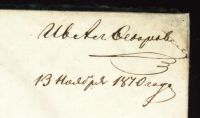 Ив Ал Океров
13 Ноября 1870 года